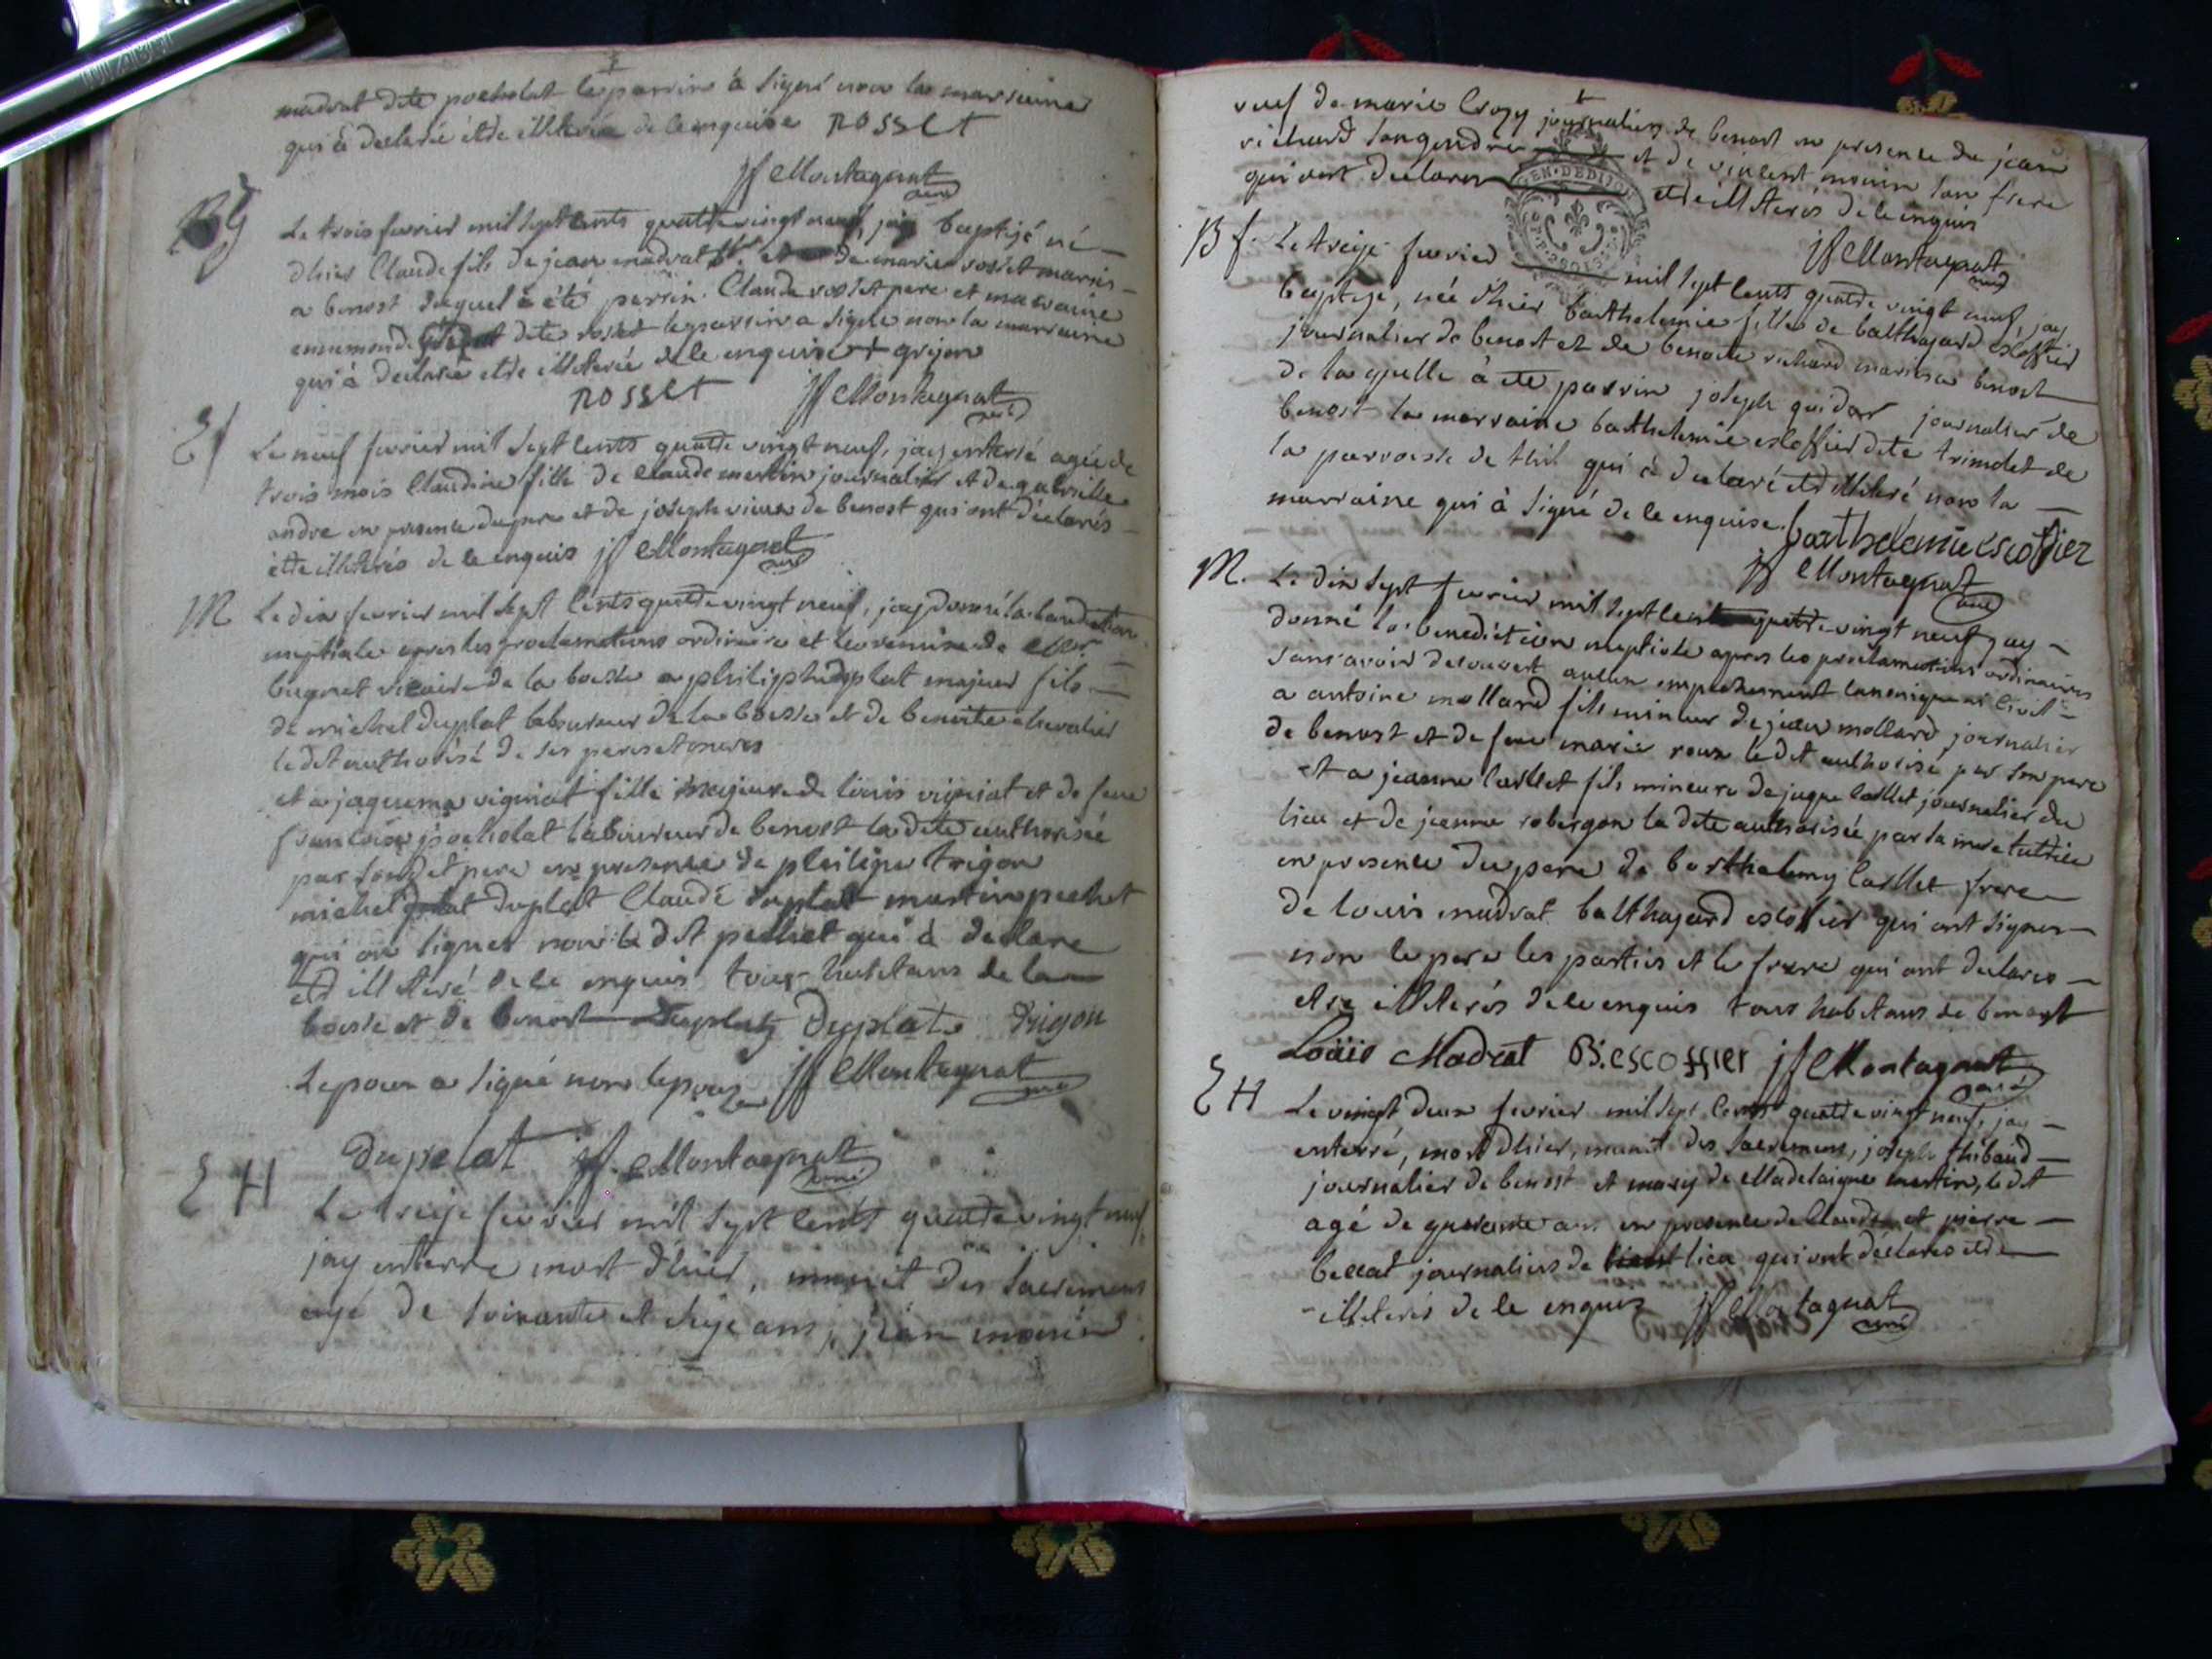 madrat dite pocholat le parrin à signé non la marraine
qui à declaré être illiterée de ce enquise ROSSET
jf Montagnat
curé
Bg
Le trois fevrier mil sept cents quatre vingt neuf, jay baptisé né
dhier Claude fils de jean madrat et de marie rosset mariés
a benost duquel à été parrin Claude rosset pere et marraine
ennemonde dite rosset le parrin a signé non la marraine
qui à declaré etre illiterée de ce enquise + grijon
ROSSET jf Montagnat
curé
Ef
Le neuf fevrier mil sept cents quatre vingt neuf, jay enterré agée de
trois mois Claudine fille de Claude martin journalier et de gabrielle
andre en presence du pere et de joseph de benost qui ont déclarés
être illiterés de ce enquis jf Montagnat
curé
M
Le dix fevrier mil sept cents quatre vingt neuf, jay donné la benediction
nuptiale apres les proclamations ordinaires et les remise de Mr
bugnet vicaire de la boisse a philiphe duplat majeur fils
de michel duplat laboureur de la boisse et de benoite chevalier
le dit authorisé de ses peres et meres
et a jaquema vigniat fille majeure de louis vigniat et de feue
francoise pocholat laboureur de benost la dite authorisée
par son dit pere en presence de philipe trigon
michel duplat Claude duplat martin pechet
qui on signer non le dit pechet qui à declare
etre illiteré de ce enquis tous habitans de la
boisse et de benost Duplat Duplat trigon
Lepoux a signé non lepouze jf Montagnat
curé
duplat jf Montagnat
curé
E H
Le treize fevrier mil sept cents quatre vingt neuf
jay enterré mort dhier, munit des sacremens
agé de soixante et seize ans, jean monin
veuf de marie Crozy journalier de benost en presence de jean
richard son gendre et de vincent monin son frere
qui ont declarer etre illiterés de ce enquis
GEN. DE DIJON
jf Montagnat
curé
B f.
Le treize fevrier mil sept cents quatre vingt neuf, jay
baptizé, née dhier barthelemie fille de balthazard escoffier
journalier de benost et de benoite richard mariés a benost
de laquelle à ete parrin joseph guidon journalier de
benost la marraine barthelemie escoffier dite trimolet de
la parroisse de thil qui à declaré etre illiteré non la
marraine qui à signé de ce enquise. barthelemie escoffier
jf Montagnat
curé
M.
Le dix sept fevrier mil sept cents quatre vingt neuf jay
donné la benediction nuptiale apres les proclamations ordinaires
sans avoir decouvert aucun empechement canonique ni civil
a antoine mollard fils mineur de jean mollard journalier
de benost et de feue marie roux le dit authorisé par son pere
et a jeanne caillet fils mineure de jaque caillet journalier du
lieu et de jeanne robergon la dite authorisée par sa mere tutrice
en presence du pere de barthelemy caillet frere
de louis madrat balthazard escoffier qui ont signer
non le pere les parties et le frere qui ont declares
etre illiterés de ce enquis tous habitans de benost
Loüis Madrat B. escoffier jf Montagnat
curé
E H
Le vingt deux fevrier mil sept cents quatre vingt neuf, jay
enterré, mort dhier, munit des sacremens, joseph thibaud
journalier de benost et mary de Madelaigne martin, le dit
agé de quarante ans en presence de Claude et pierre
bellat journaliers de lieu qui ont déclarés etre
illiterés de ce enquis jf Montagnat
curé